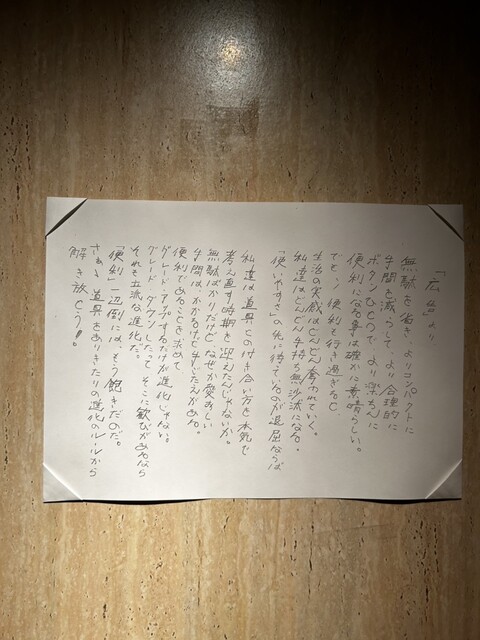 「広告」より
無駄を省き、よりコンパクトに
手間を減らして、より合理的に
ボタンひとつで、より楽ちんに
便利になる事は確かに素晴らしい。
でも、便利も行き過ぎると、
生活の実感はどんどん奪われていく。
私達はどんどん手持ち無沙汰になる。
「使いやすさ」の先に待っているのが退屈ならば
私達は道具との付き合い方を本気で
考え直す時期を迎えたんじゃないか。
無駄ばかりだけど、なぜか愛おしい
手間は、かかるけど手ごたえがある。
便利であることを求めて
グレード・アップするだけが進化じゃない。
グレード・ダウンしたって、そこに歓びがあるなら
それも立派な進化だ。
「便利」一辺倒には、もう飽きたのだ。
さあ、道具をありきたりの進化のルールから
解き放とう!。